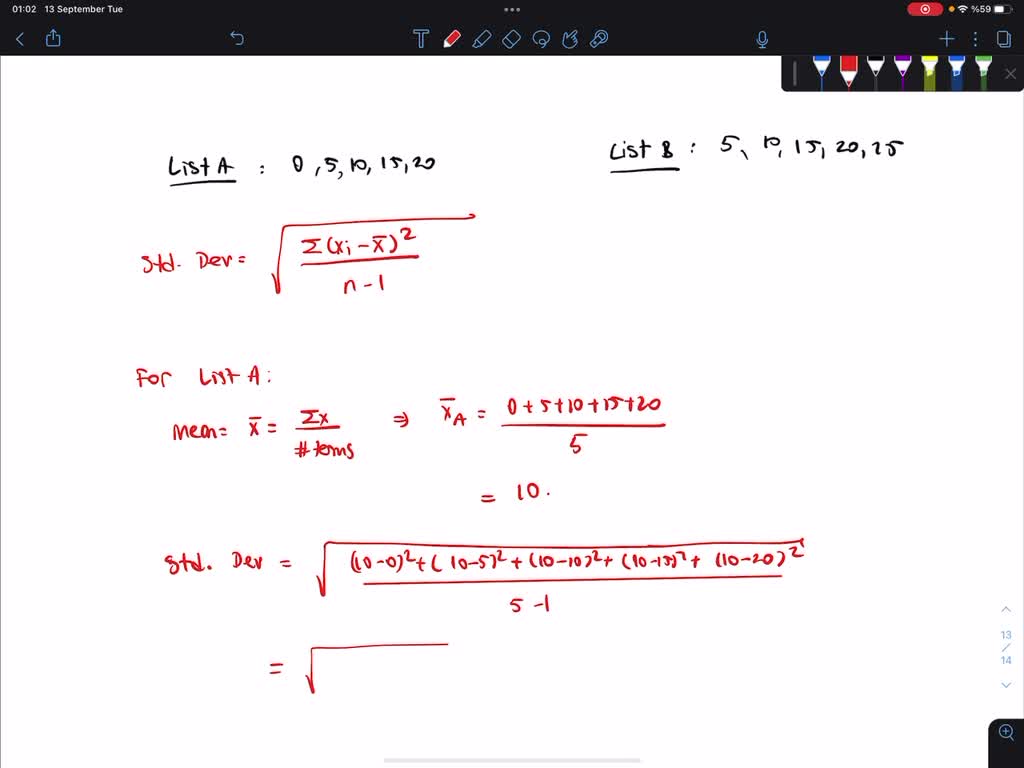 01:02 13 September Tue
%59
List A : 0, 5, 10, 15, 20
List B : 5, 10, 15, 20, 25
Std. Dev = √(Σ(xi - x̄)² / n-1)
For List A:
mean = x̄ = Σx / #terms ⇒ x̄A = 0+5+10+15+20 / 5
= 10.
Std. Dev = √((10-0)² + (10-5)² + (10-10)² + (10-15)² + (10-20)² / 5-1)
= √
13
/
14